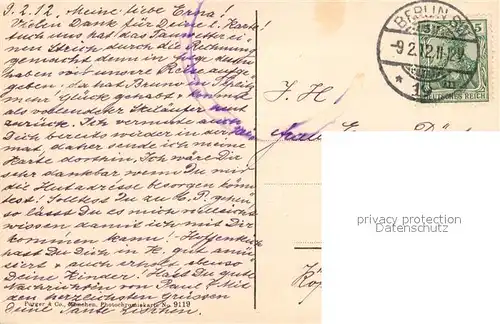 9.2.12. Meine liebe Erna!
Vielen Dank für Deine l. Karte!
Auch uns hat das Tauwetter ei-
nen Strich durch die Rechnung
gemacht denn in folge dessen
haben wir unsere Reise aufge-
geben, da hat Bruno in
mehr Glück gehabt & kommt
als vollendeter Skiläufer
zurück. Ich vermute auch
Dich bereits wieder in der
mat, daher sende ich meine
Karte dorthin. Ich wäre Dir
sehr dankbar wenn Du mir
die Hutadresse besorgen könn
test! Solltest Du zu E. P. gehen,
so lässt Du es mich vielleicht
wissen damit ich mit Dir
kommen kann! Hoffentlich
hast Du Dich in H. gut amü
siert & auch ebenso
Deine Kinder! Hast Du gute
Nachrichten von Paul? Mit
den herzlichsten Grüssen
Deine Tante
Purger & Co., München, Photochromiekarte No. 9119
BERLIN SW
-9.2.12.11-12V
* 19
5
DEUTSCHES REICH
privacy protection
Datenschutz